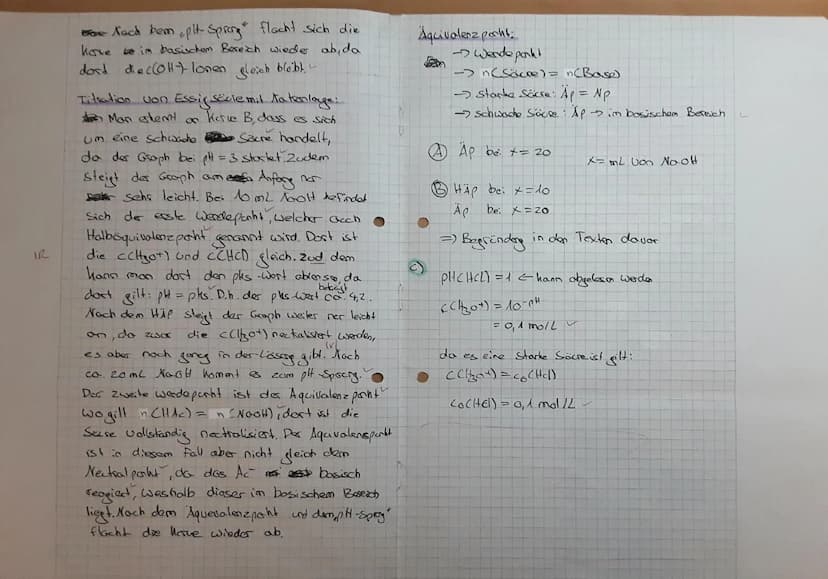 Nach dem „pH-Sprung" flacht sich die
Kurve in basischen Bereich wieder ab, da
dort die c(OH-)-Ionen gleich bleibt.
Titration von Essigsäure mit Natronlauge:
Man erkennt an Kurve B, dass es sich
um eine schwache Säure handelt,
da der Graph bei pH = 3 startet. Zudem
steigt der Graph am Anfang nur
sehr leicht. Bei 10 mL NaOH befindet
sich der erste Wendepunkt, welcher auch
Halbäquivalenzpunkt genannt wird. Dort ist
die c(H3O+) und c(HCl) gleich. Zud dem
kann man dort den pks-Wert ablesen, da
dort gilt: pH = pks. D.h. der pks-Wert beträgt ca. 4,2.
Nach dem HÄP steigt der Graph weiter nur leicht
an, da zwar die c(H3O+) neutralisiert werden,
es aber noch genug in der Lösung gibt. Nach
ca. 20 mL NaOH kommt es zum pH-Sprung.
Der zweite Wendepunkt ist der Äquivalenzpunkt
wo gilt n(HAc) = n(NaOH), dort ist die
Säure vollständig neutralisiert. Der Äquivalenzpunkt
ist in diesem Fall aber nicht gleich dem
Neutralpunkt, da das Ac- basisch
reagiert, weshalb dieser im basischem Bereich
liegt. Nach dem Äquivalenzpunkt und dem „pH-Sprung"
flacht die Kurve wieder ab.
Äquivalenzpunkt:
→ Wendepunkt
→ n(Säure) = n(Base)
→ starke Säure: Äp = Np
→ schwache Säure: Äp → im basischem Bereich
A Äp bei x = 20
x = mL von NaOH
B HÄp bei x = 10
Äp bei x = 20
=> Begründung in den Texten davor
c)
pH(HCl) = 1 ← kann abgelesen werden
c(H3O+) = 10^-pH
= 0,1 mol/L
da es eine starke Säure ist gilt:
c(H3O+) = c0(HCl)
c0(HCl) = 0,1 mol/L